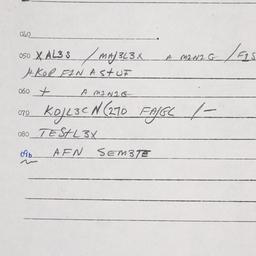 040
050 X AL3S / MAJ3L3X A MINIG / FIS
KOP FIN A S+UF
060 + A MINIG
070 KOJL3C N(270 FAJGL /-
080 TES+L3X
09b AFN SEM3TE